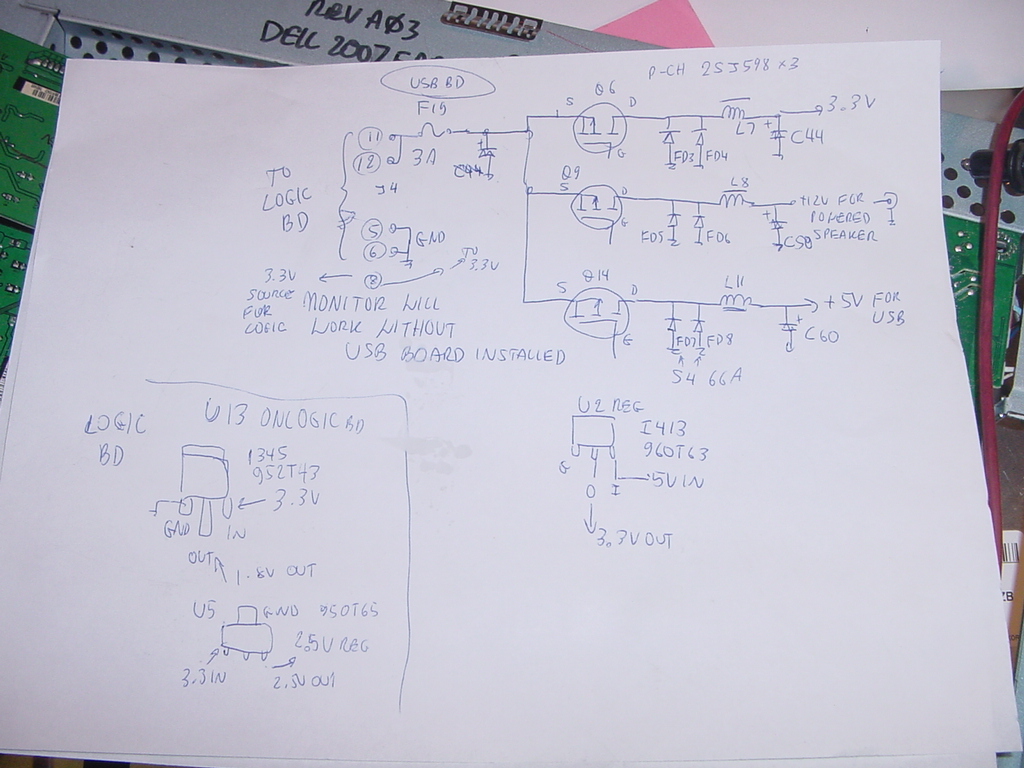 REV A03
DELL 2007FP
USB BD
P-CH 2SJ598 x3
F19
Q6
S D
G
3.3V
11
12
3A
C94
J4
FD3 FD4
L7
+
C44
TO
LOGIC
BD
Q9
S D
G
L8
FD5 FD6
+
C58
+12V FOR
POWERED
SPEAKER
5
6
GND
8
TO
3.3V
3.3V
SOURCE
FOR
LOGIC
MONITOR WILL
WORK WITHOUT
USB BOARD INSTALLED
Q14
S D
G
L11
FD7 FD8
S4 66A
+
C60
+5V FOR
USB
LOGIC
BD
U13 ON LOGIC BD
1345
952T43
3.3V
GND IN
OUT
1.8V OUT
U5 GND 950T65
2.5V REG
3.3 IN
2.5V OUT
U2 REG
I413
960T63
G O I
5V IN
3.3V OUT
ZB